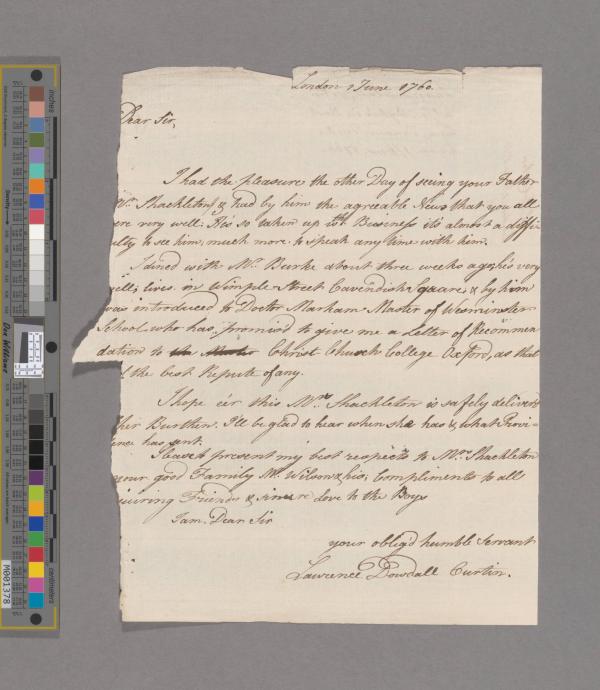 London 1 June 1760.
Dear Sir,
I had the pleasure the other Day of seeing your Father
Mr. Shackleton, & had by him the agreeable News that you all
were very well. He's so taken up wth. Business its almost a diffi
culty to see him, much more to speak any time with him.
I dined with Mr. Burke about three weeks ago, his very
well; lives in Wimple Street Cavendish Square, & by him
was introduced to Doctr. Markam Master of Wesminster
School who has promised to give me a Letter of Recommen
dation to the Christ Church College Oxford, as that
the best Repute of any.
I hope e'er this Mrs. Shackleton is safely deliver'd
her Burthen. I'll be glad to hear when she has & what Provi-
dence has sent.
I leave to present my best respects to Mrs. Shackleton
your good Family Mr. Wilson & his, Compliments to all
quiring Friends & sincere Love to the Boys
I am Dear Sir
your oblig'd humble Servant
Lawrence Dowdall Curtin.
inches
centimeters
Don Williams
M001378